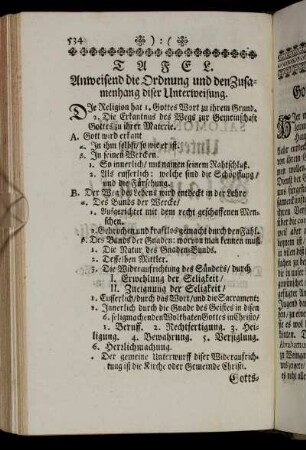 534 ):(
TAFEL.
Anweisend die Ordnung und den Zusa-
menhang diser Unterweisung.
Die Religion hat 1. Gottes Wort zu ihrem Grund.
2. Die Erkantnus des Wegs zur Gemeinschaft
Gottes zu ihrer Materie.
A. Gott wird erkant
a. In ihm selbst / so wie er ist.
b. In seinen Wercken.
1. So innerlich / mit namen seinem Rahtschluß.
2. Als eusserlich: welche sind die Schöpffung /
und die Fürsehung.
B. Der Weg des Lebens wird entdeckt in der Lehre
a. Des Bunds der Wercke /
1. Aufgerichtet mit dem recht geschaffenen Men-
schen.
2. Gebrochen und kraftlos gemacht durch den Fähl.
b. Des Bunds der Gnaden: worvon man kennen muß
1. Die Natur des Gnaden-Bunds.
2. Desselben Mittler.
3. Die Wideraufrichtung des Sünders / durch
I. Erwehlung der Seligkeit /
II. Zueignung der Seligkeit /
1. Eusserlich / durch das Wort / und die Sacrament:
2. Innerlich durch die Gnade des Geistes in disen
6. seligmachenden Wolthaten Gottes in Christo /
1. Beruff. 2. Rechtfertigung. 3. Hei-
ligung. 4. Bewahrung. 5. Versiglung.
6. Herrlichmachung.
Der gemeine Unterwurff diser Wideraufrich-
tung ist die Kirche oder Gemeinde Christi.
Gotts-